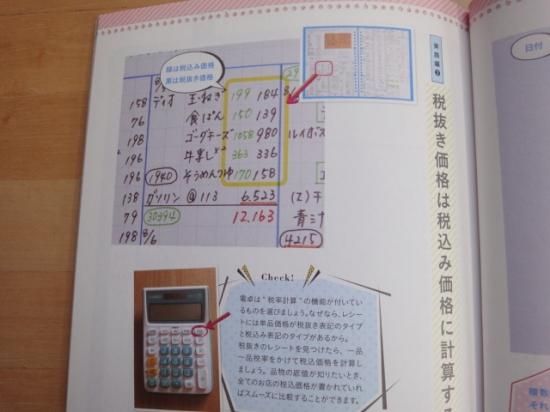 実践編②
税抜き価格は税込み価格に計算する
緑は税込み価格
黒は税抜き価格
158 ディオ 玉ねぎ 199 184
76 食ぱん 150 139
198 ゴーダチーズ 1058 980 ルイボス
196 363 336
196 1940 そうめんつゆ 170 158
138 ガソリン @ 113 6.523
79 30394 12.163 青汁
198 8/6 4215
Check!
電卓は“税率計算”の機能が付いてい
るものを選びましょう。なぜなら、レシー
トには単品価格が税抜き表記のタイプ
と税込み表記のタイプがあるから。
税抜きのレシートを見つけたら、一品
一品税率をかけて税込価格を計算し
ましょう。品物の底値が知りたいとき、
全てのお店の税込価格が書かれていれ
ばスムーズに比較することができます。
日付